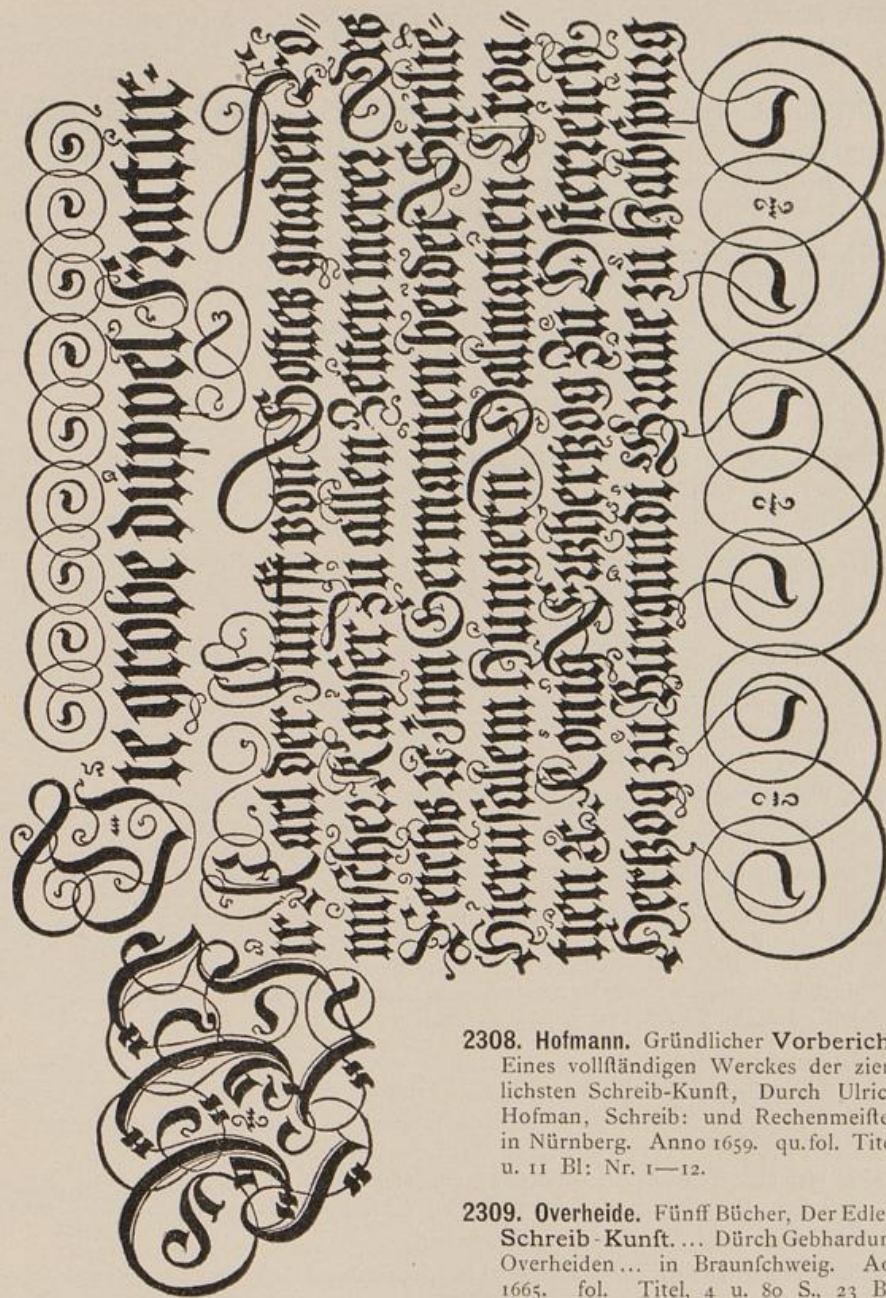 Die grobe düppel Fractur.
Wir Karl der Fünfft von Gottes gnaden Rö=
miſcher Kayſer Zu allen Zeitten merer Des
Reichs ꝛc. Jnn Germanien beider Sicilie=
Hieruſalem Hungern Dalmatien Croa=
tien ꝛc. König Ertzhertzog Zu Oſterreich
Hertzog zu Burgundi Graue zu Habſpurg
2308. Hofmann. Gründlicher Vorberich
Eines vollſtändigen Werckes der zier
lichsten Schreib-Kunſt, Durch Ulric
Hofman, Schreib: und Rechenmeiſte
in Nürnberg. Anno 1659. qu.fol. Tite
u. 11 Bl: Nr. 1—12.
2309. Overheide. Fünff Bücher, Der Edle
Schreib-Kunſt. ... Dürch Gebhardun
Overheiden ... in Braunſchweig. Ao
1665. fol. Titel, 4 u. 80 S., 23 B